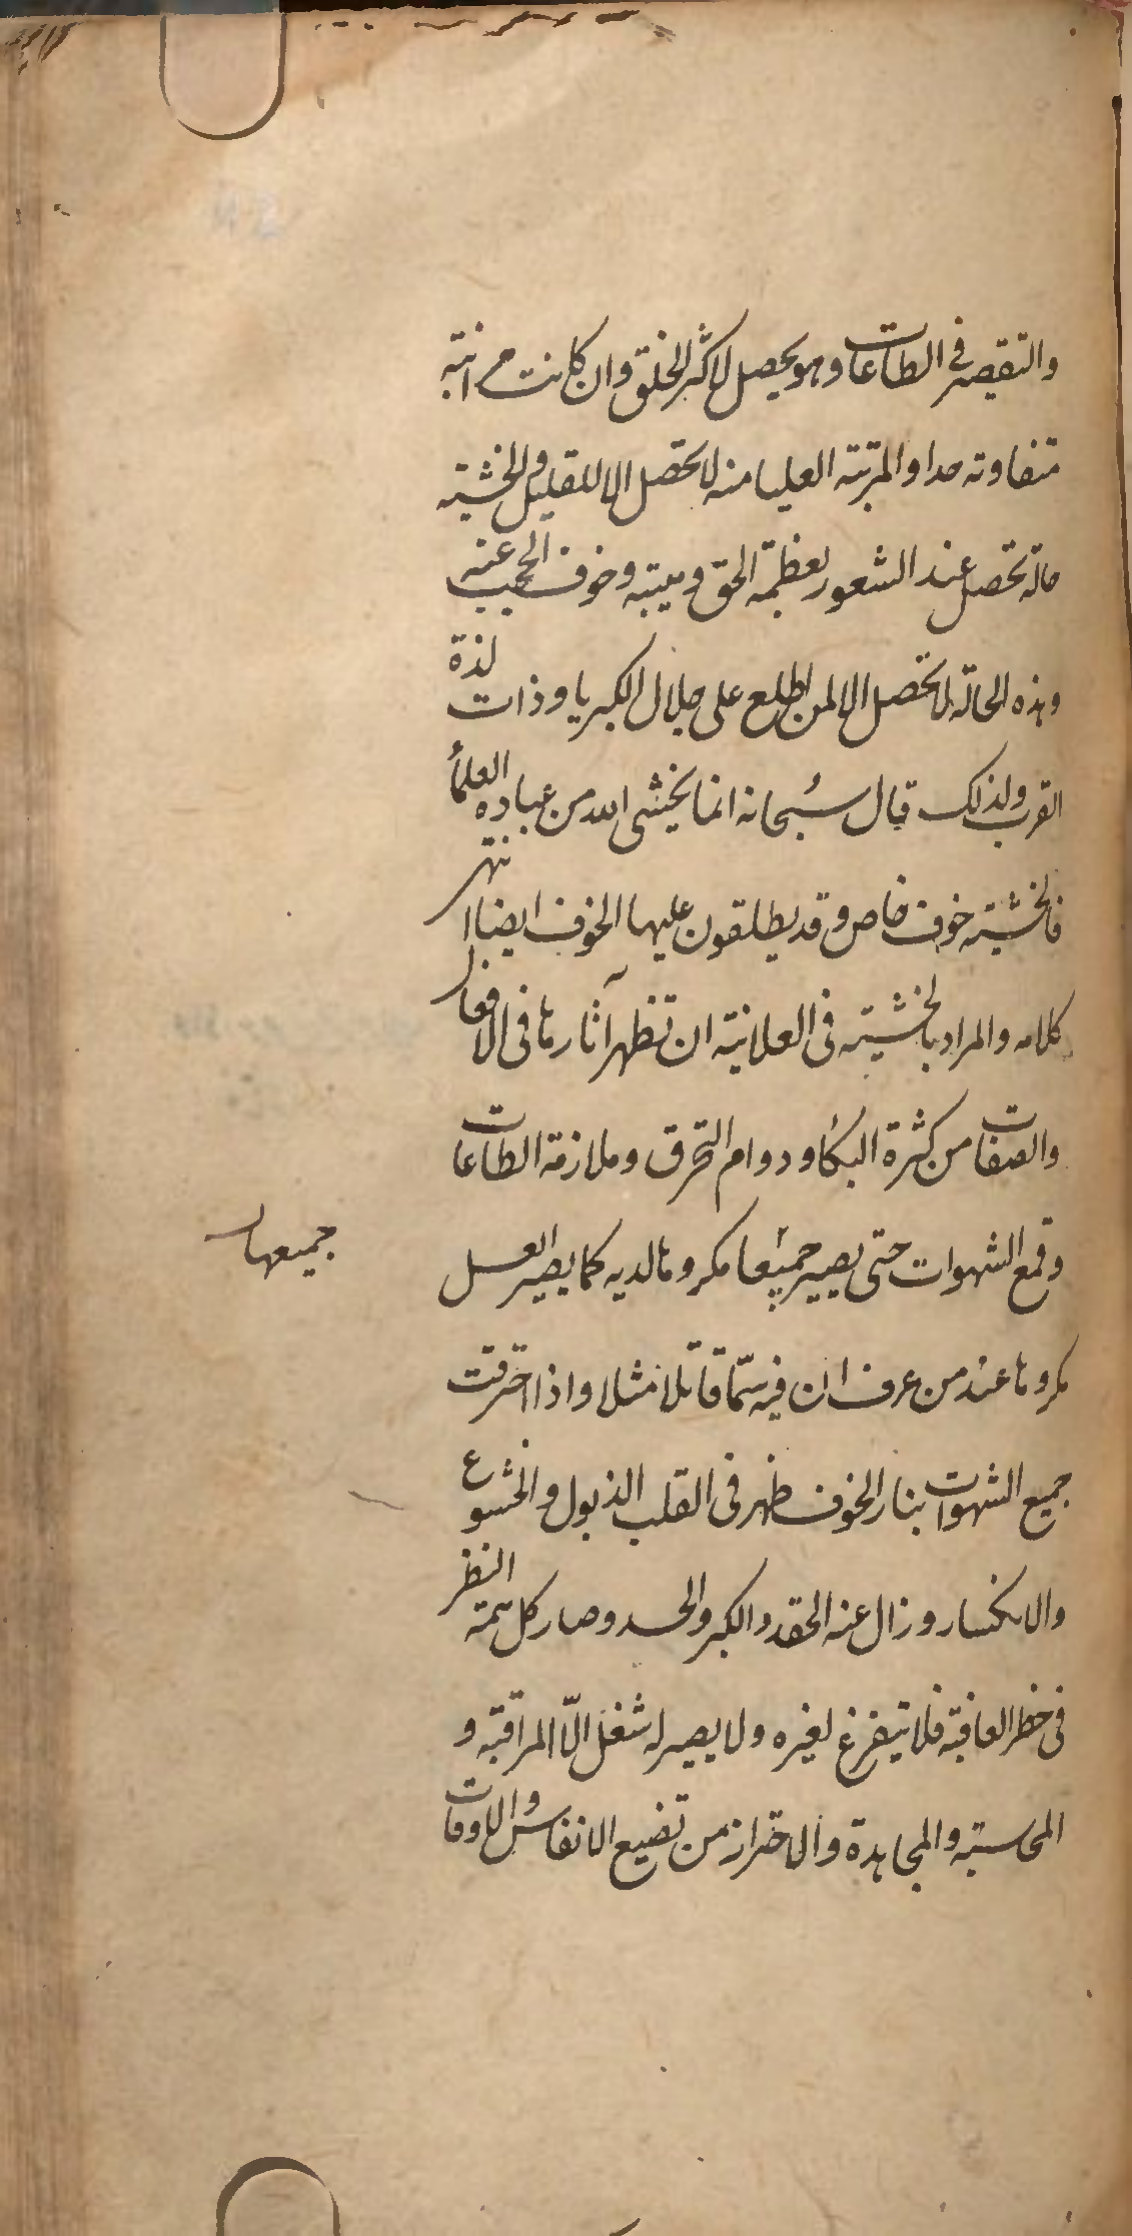 والتقصير في الطاعات وهو يحصل لاكثر الخلق وان كانت مراتبه
متفاوته جدا والمرتبة العليا منه لا تحصل الا للقليل والخشية
حالة تحصل عند الشعور بعظمة الحق وهيبته وخوف الحجب عنه
وهذه الحالة لا تحصل الا لمن اطلع على جلال الكبريا وذات لذة
القرب ولذلك قال سبحانه انما يخشى الله من عباده العلمأ
فالخشية خوف خاص وقد يطلقون عليها الخوف ايضا انتهى
كلامه والمراد بالخشية فى العلانية ان تظهر آثارها فى الافعال
والصفات من كثرة البكاء ودوام التحرق وملازمة الطاعات
وقمع الشهوات حتى يصير جميعا مكروها لديه كما يصير العسل
جميعها
مكروها عند من عرف ان فيه سمّا قاتلا مثلا واذا احترقت
جميع الشهوات بنار الخوف ظهر فى القلب الذبول والخشوع
والانكسار وزال عنه الحقد والكبر والحسد وصار كل همه النظر
فى خطر العاقبة فلا يتفرغ لغيره ولا يصير له شغل الّا المراقبة و
المحاسبة والمجاهدة والاحتراز من تضييع الانفاس والاوقات